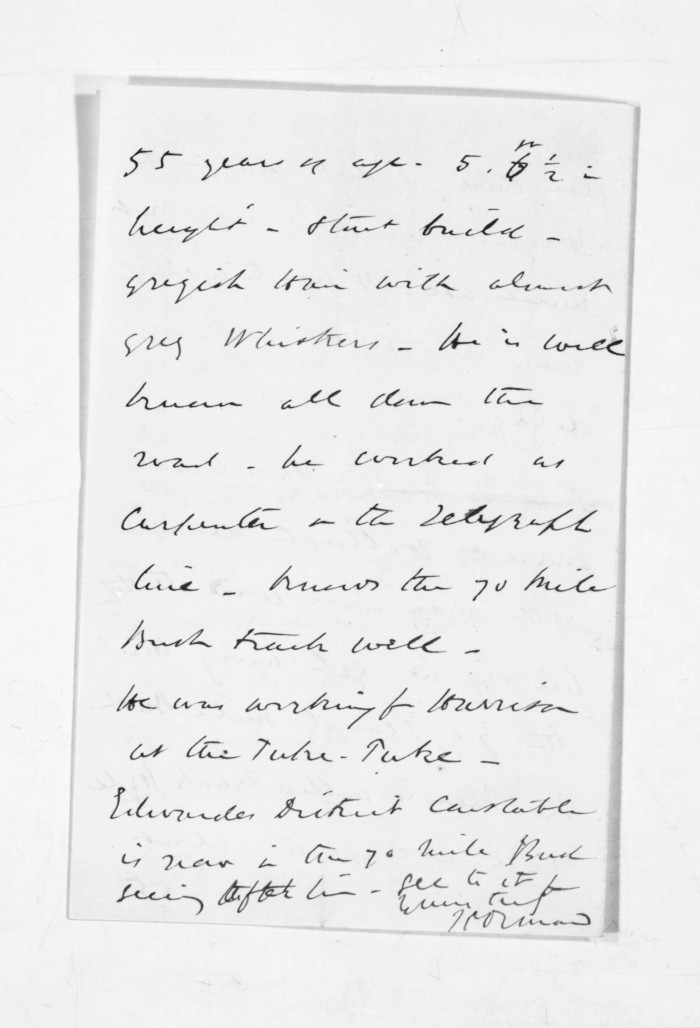 55 years of age - 5. 6 ½ in
height - stout build -
greyish hair with almost
grey Whiskers - He is well
known all down the
road - he worked as
Carpenter on the Telegraph
line - knows the 70 Mile
Bush track well -
He was working for Harrison
at the Tuke-Tuke -
Edwardes District Constable
is now in the 70 Mile Bush
seeing after him - see to it
Yours truly
JD Ormond